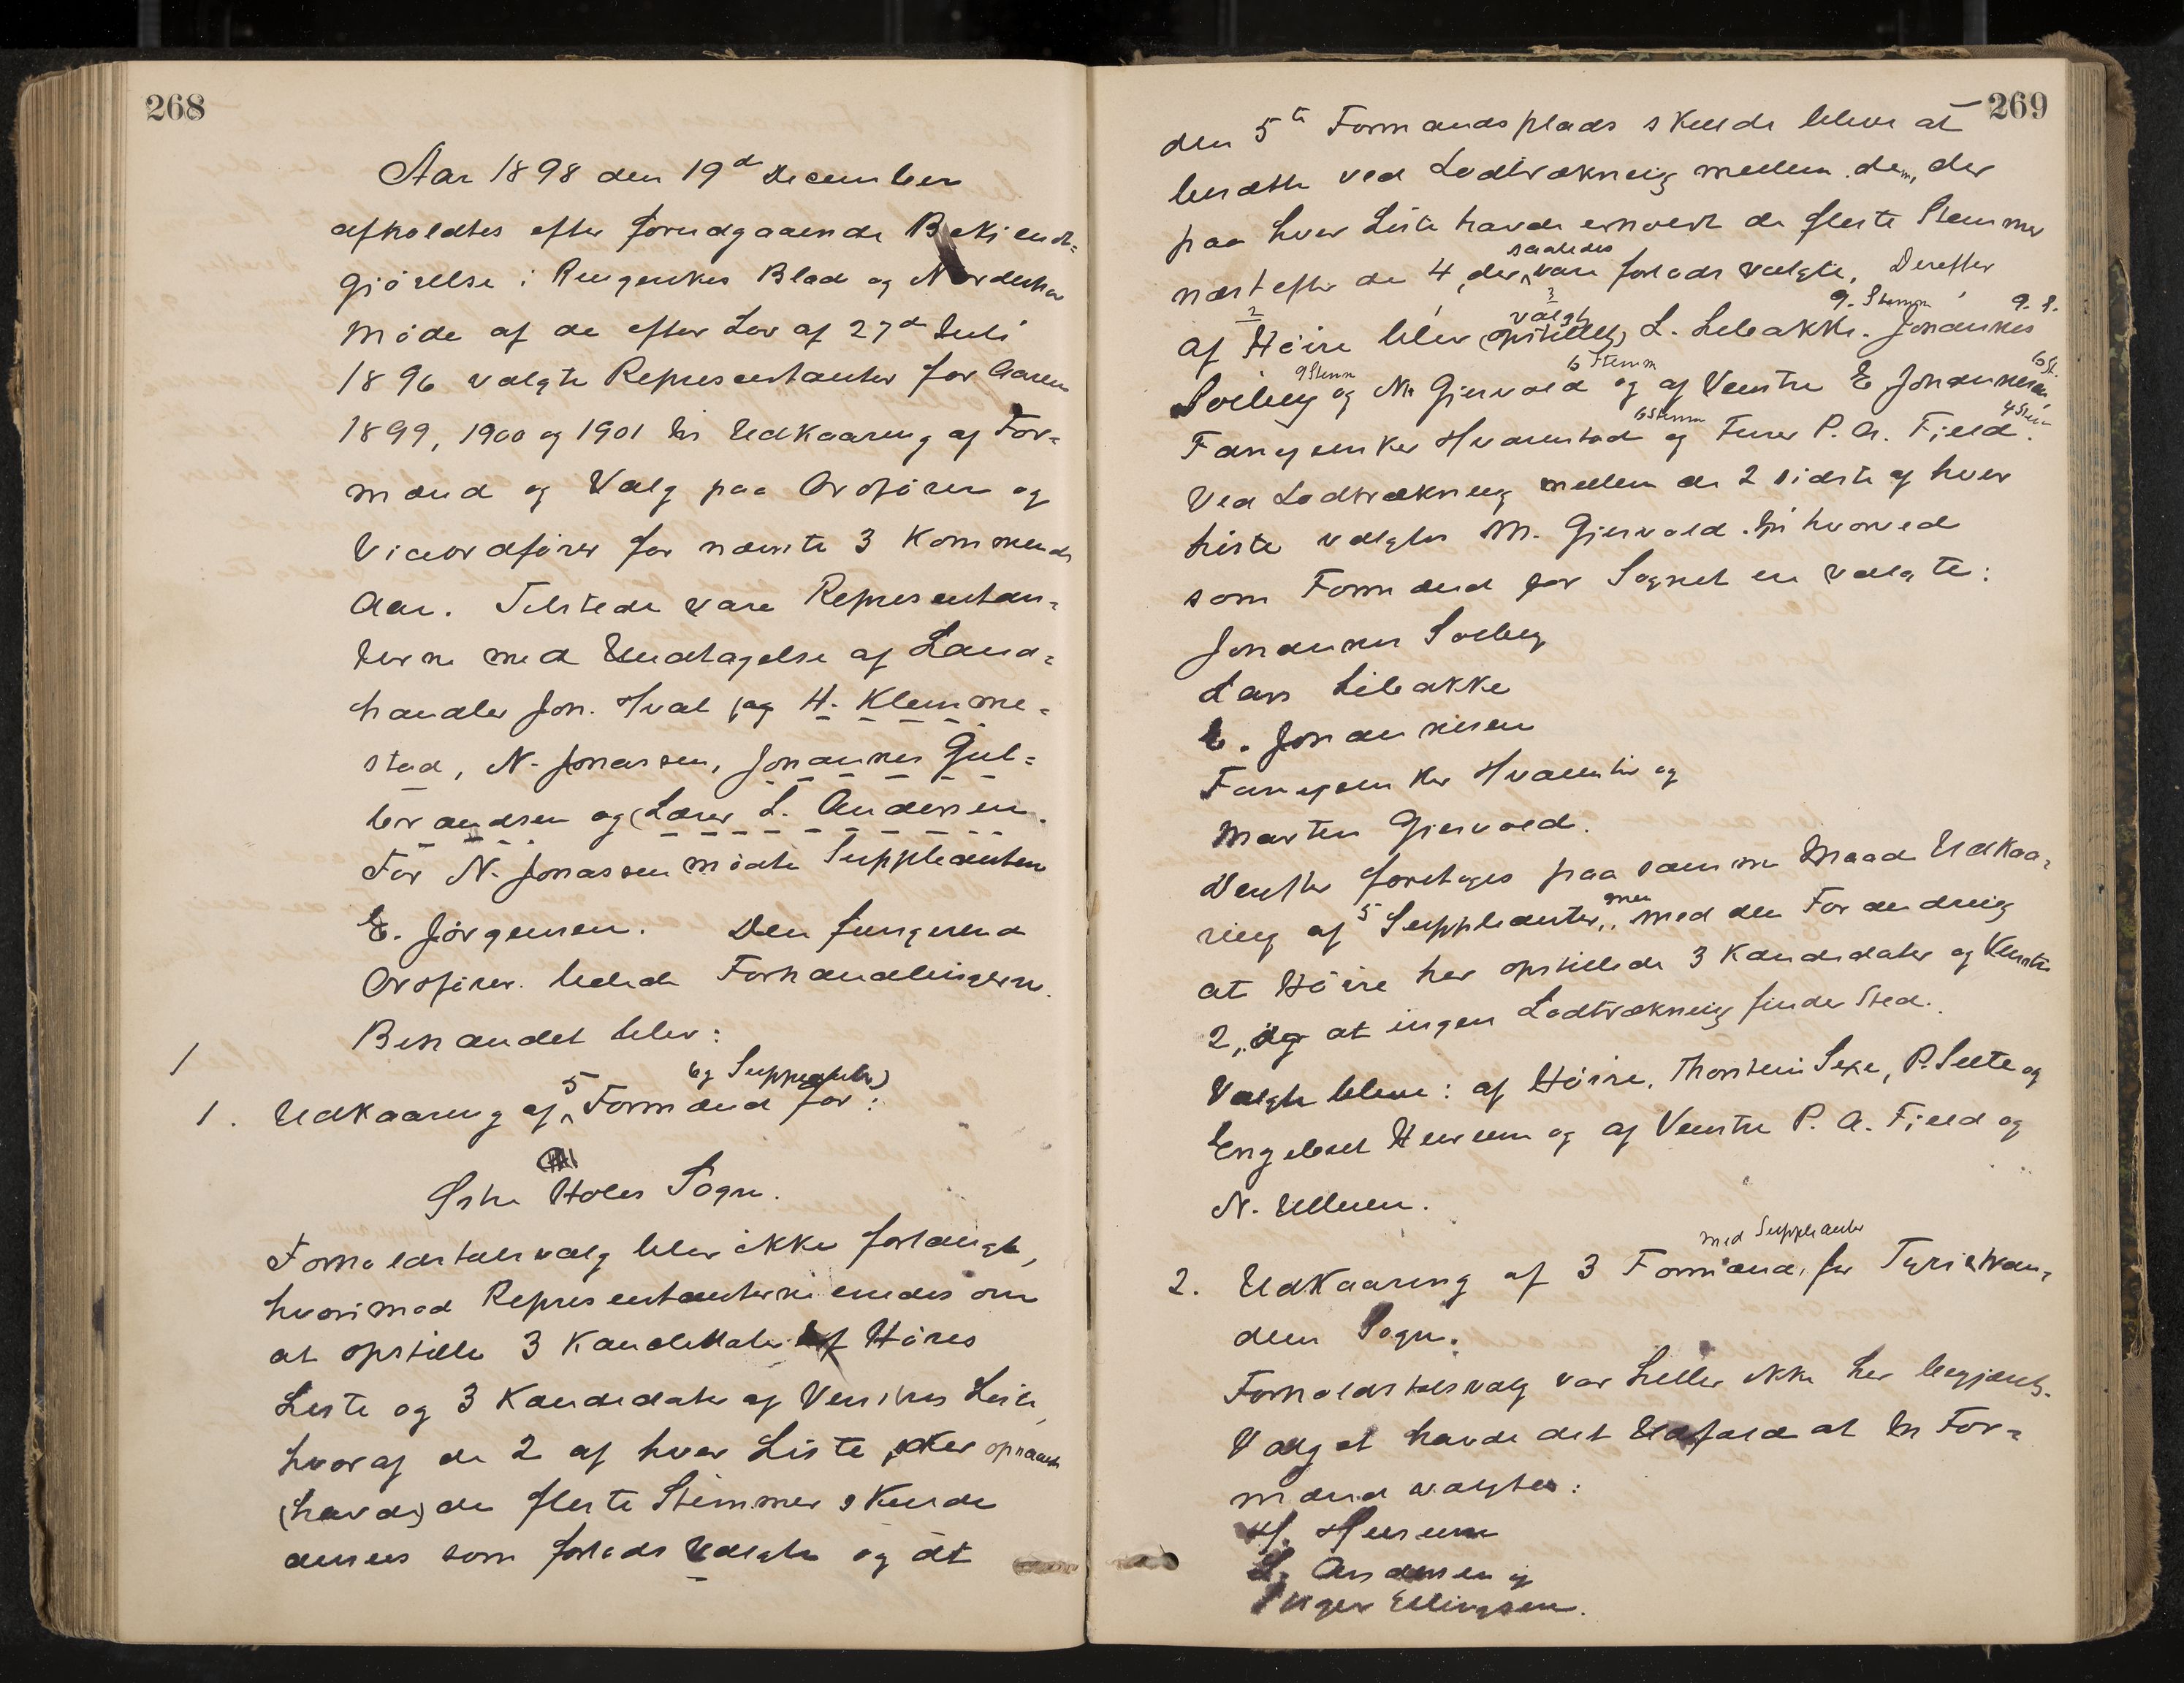 268
Aar 1898 den 19de December
afholdtes efter forudgaaende Bekjendt=
gjörelse i Ringerikes Blad og Norderhov
Möde af de efter Lov af 27de Juli
1896 valgte Representanter for Aarene
1899, 1900 og 1901 til Udkaaring af For=
mænd og Valg paa Ordförer og
Viceordförer for næste 3 kommende
Aar. Tilstede vare Representan=
terne med Undtagelse af Land=
handler Joh. Hval (og H. Klemme=
stad, N. Jonassen, Johannes Gul=
brandsen og (Lærer L. Andersen.
For N. Jonassen mödte Suppleanten
E. Jörgensen. Den fungerende
Ordförer ledede Forhandlingerne.
Behandlet blev:
1
og Suppleanter)
1. Udkaaring af 5 Formænd for:
Hole Sogn.
Forholdstalsvalg blev ikke forlangt,
hvorimod Representanterne enedes om
at opstille 3 Kandidater af Höires
Liste og 3 Kandidater af Venstres Liste,
hvoraf de 2 af hver Liste, der opnaaede
(havde) de fleste Stemmer skulde
ansees som forlods valgte og at
269
den 5te Formandsplads skulde blive at
besætte ved Lodtrækning mellem dem, der
paa hver Liste havde erhvervet de fleste Stemmer
saaledes
næst efter de 4, der vare forlods valgte. Derefter
2 3 valgt 9. Stemm 9. S.
af Höire blev (opstillet) L. Libakke. Johannes
9 Stemm 6 Stemm 6 St.
Solberg og M. Gjesvold og af Venstre E Johannesen,
6 Stemm 4 Stem
Fangsensker Hvamstad og Furer P. A. Fjeld.
Ved Lodtrækning mellem de 2 sidste af hver
Liste valgtes M. Gjesvold. hvorved
som Formænd for Sognet er valgte:
Johannes Solberg
Lars Libakke
E. Johannesen
og
Marten Gjesvold.
Derefter foretoges paa samme Maade Udkaa=
men
ring af 5 Suppleanter, med den Forandring
at Höire her opstillede 3 Kandidater og Venstre
2, og at ingen Lodtrækning finder Sted.
Valgte bleve: af Höire, Thorstein Sexe, P. og
Engebret og af Venstre P. A. Fjeld og
N. Ullern.
med Suppleanter
2. Udkaaring af 3 Formænd, for Tyristran=
dens Sogn.
Forholdstalsvalg var heller ikke her begjært.
Valget havde det Udfald at til For=
mænd valgtes:
H. Hurum
L. Andersen og
Inger Ellingsen.